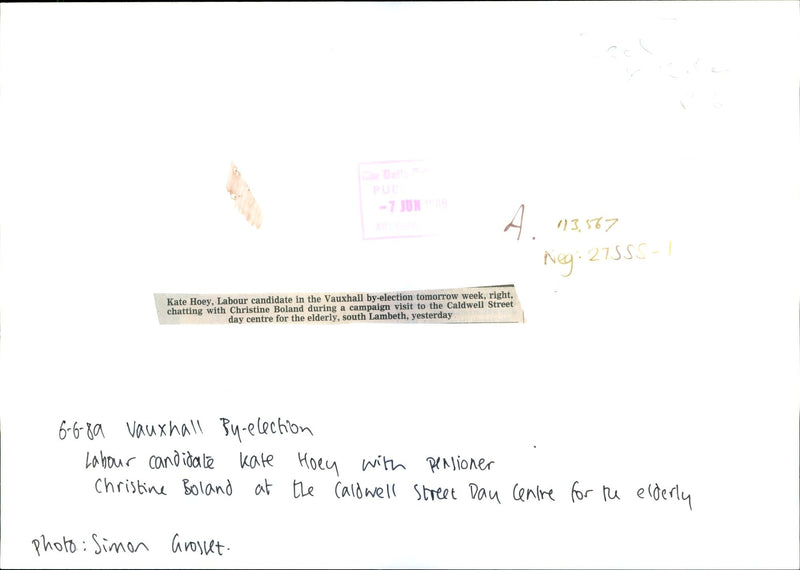 The Daily
PUB
-7 JUN 1989
A. 113,567
Neg: 27555-1
Kate Hoey, Labour candidate in the Vauxhall by-election tomorrow week, right,
chatting with Christine Boland during a campaign visit to the Caldwell Street
day centre for the elderly, south Lambeth, yesterday
6-6-89 Vauxhall By-election
Labour candidate Kate Hoey with pensioner
Christine Boland at the Caldwell Street Day Centre for the elderly
photo: Simon Grosset.